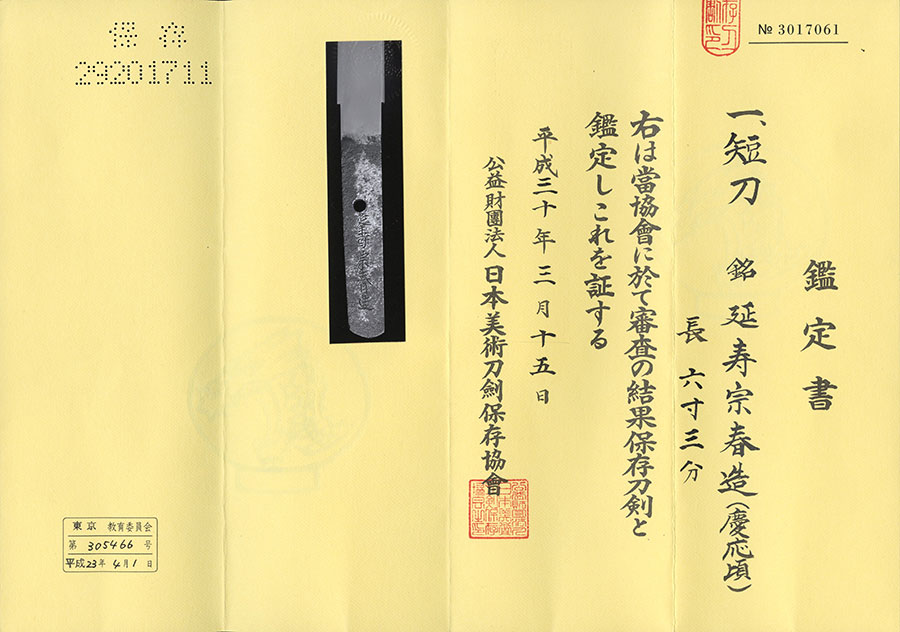 № 3017061
鑑定書
一、短刀 銘 延寿宗春造(慶応頃)
長 六寸三分
右は當協會に於て審査の結果保存刀剣と
鑑定しこれを証する
平成三十年三月十五日
公益財團法人 日本美術刀剣保存協會
保存
29201711
東京 教育委員会
第 305466 号
平成23年4月1日